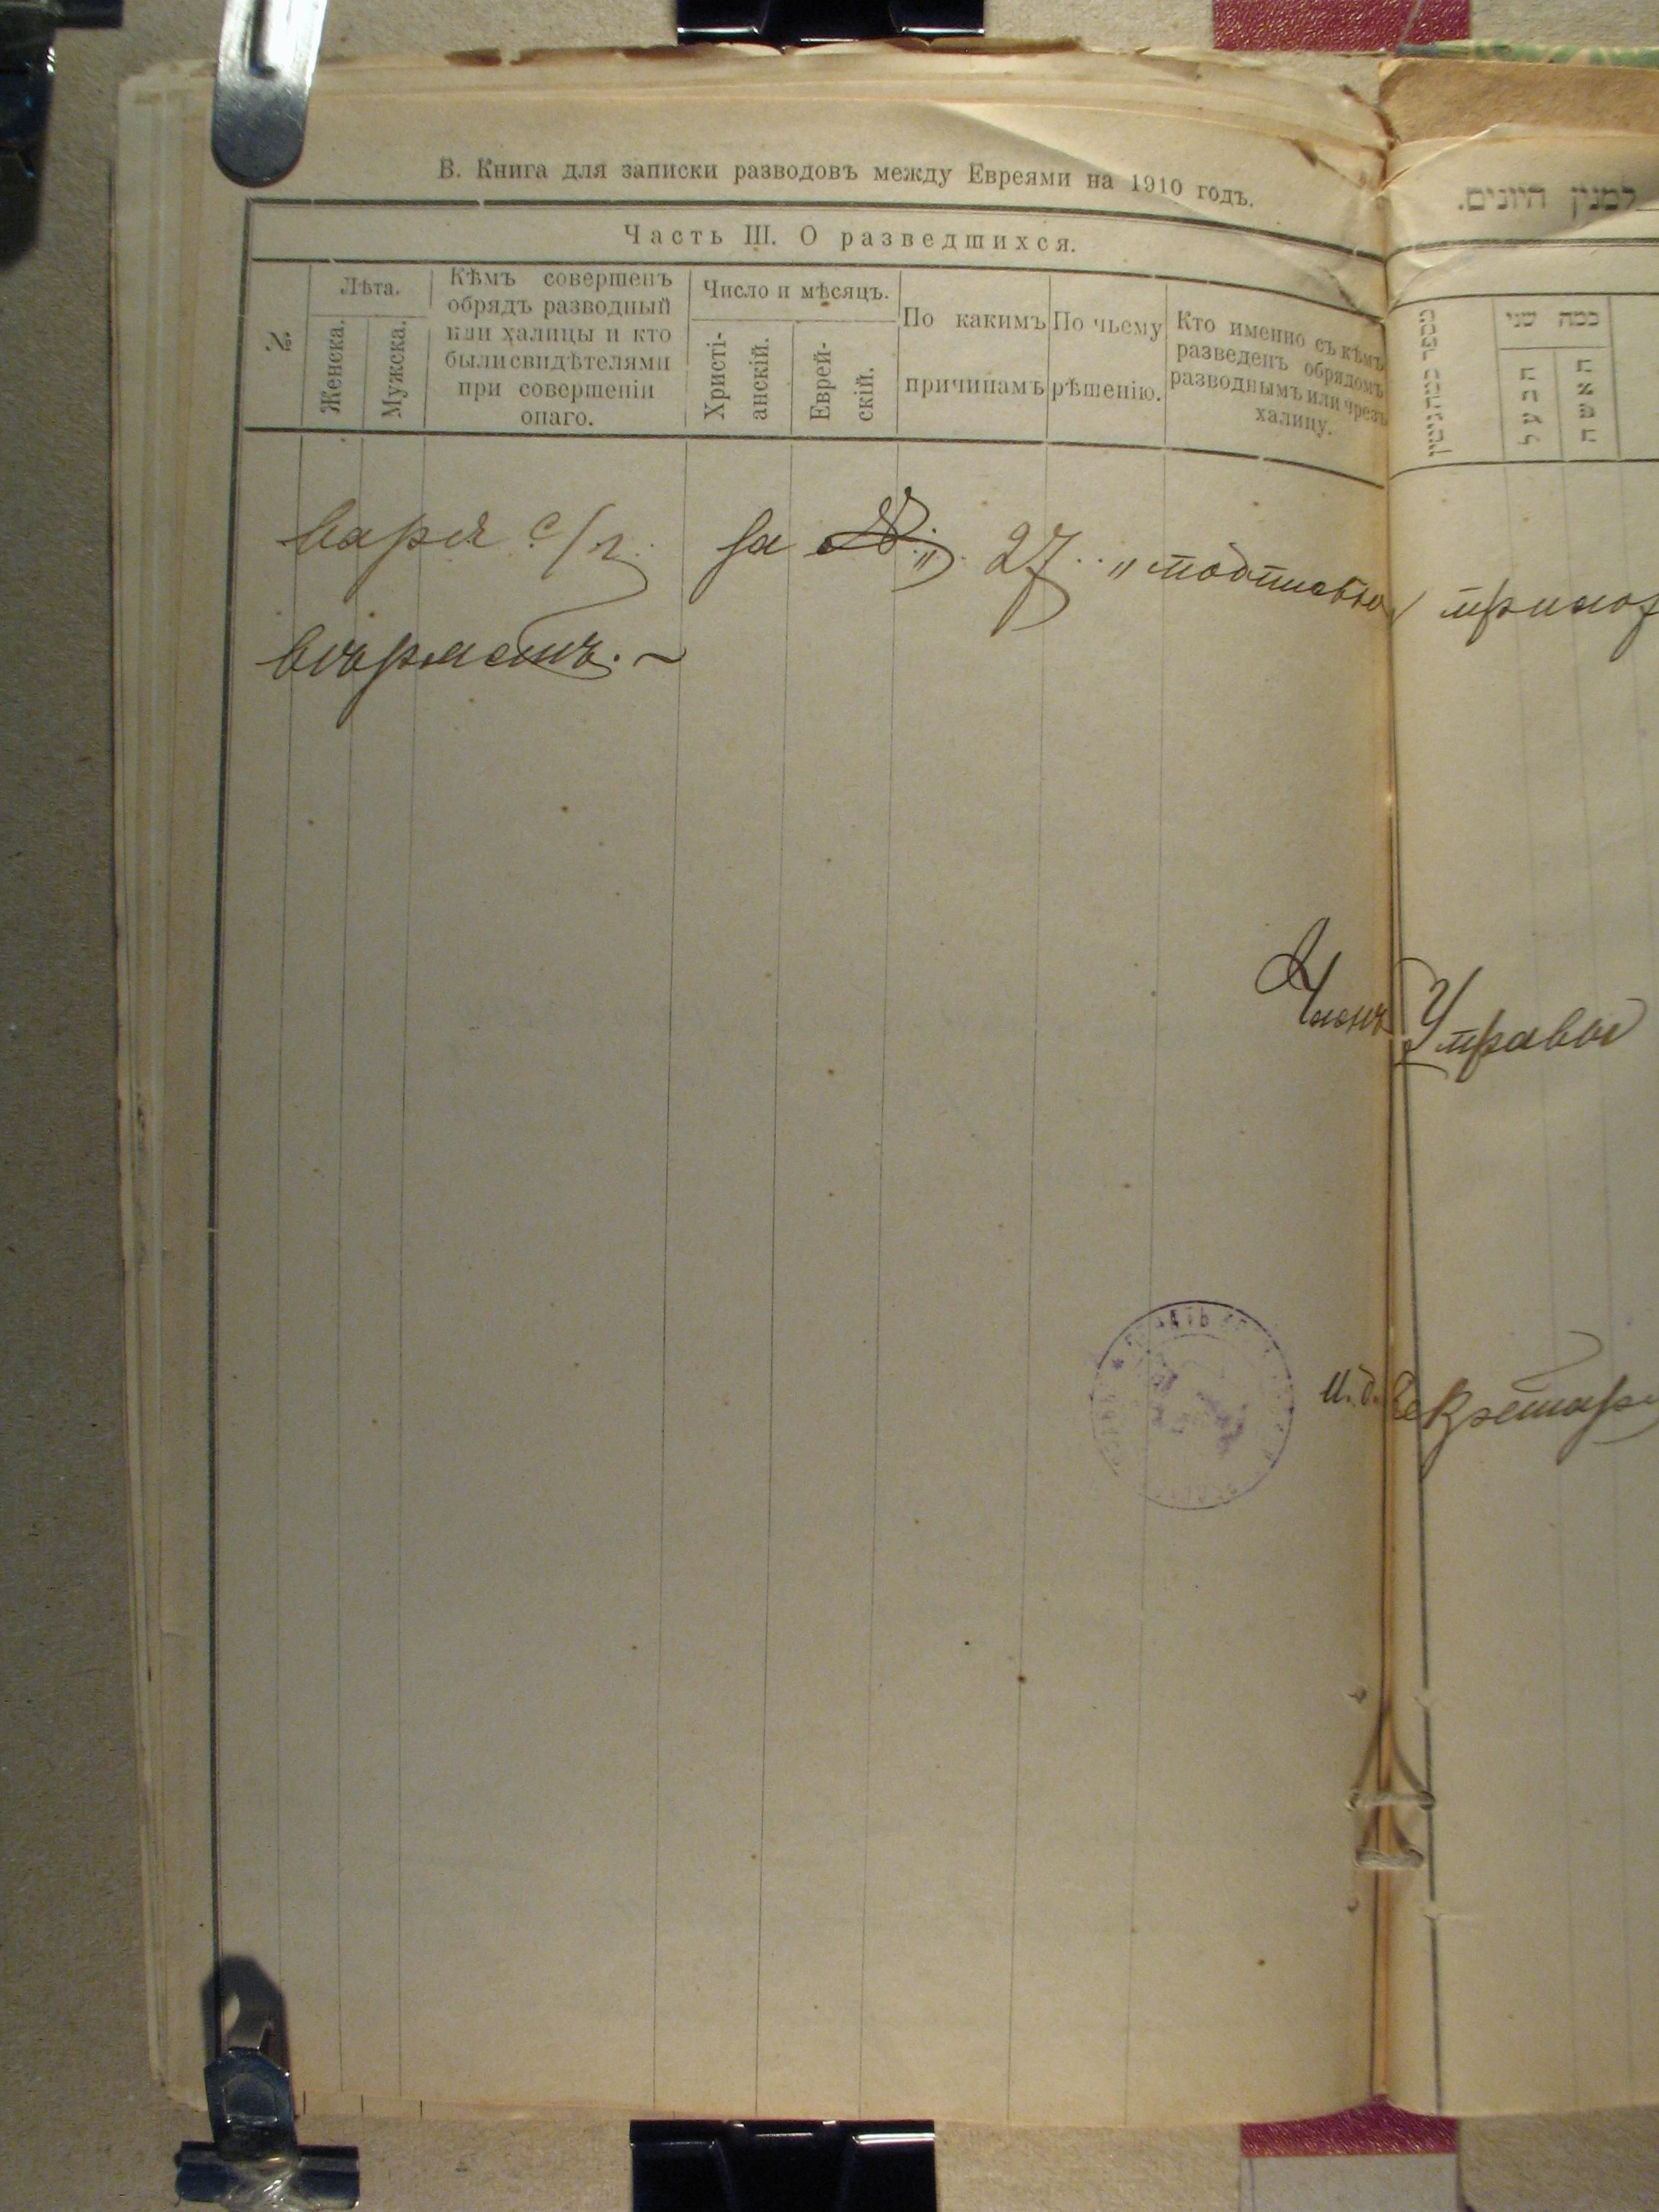 В. Книга для записки разводовъ между Евреями на 1910 годъ.
Часть III. О разведшихся.
№
Лѣта.
Женска.
Мужска.
Кѣмъ совершенъ
обрядъ разводный
или халицы и кто
были свидѣтелями
при совершеніи
онаго.
Число и мѣсяцъ.
Христі-
анскій.
Еврей-
скій.
По какимъ
причинамъ
По чьему
рѣшенію.
Кто именно съ кѣмъ
разведенъ обрядомъ
разводнымъ или чрезъ
халицу.
למנין היונים.
כמה שני
הבעל
האשה
варя с/г. за 27 „ подписью
Членъ Управы
И. д. Секретаря